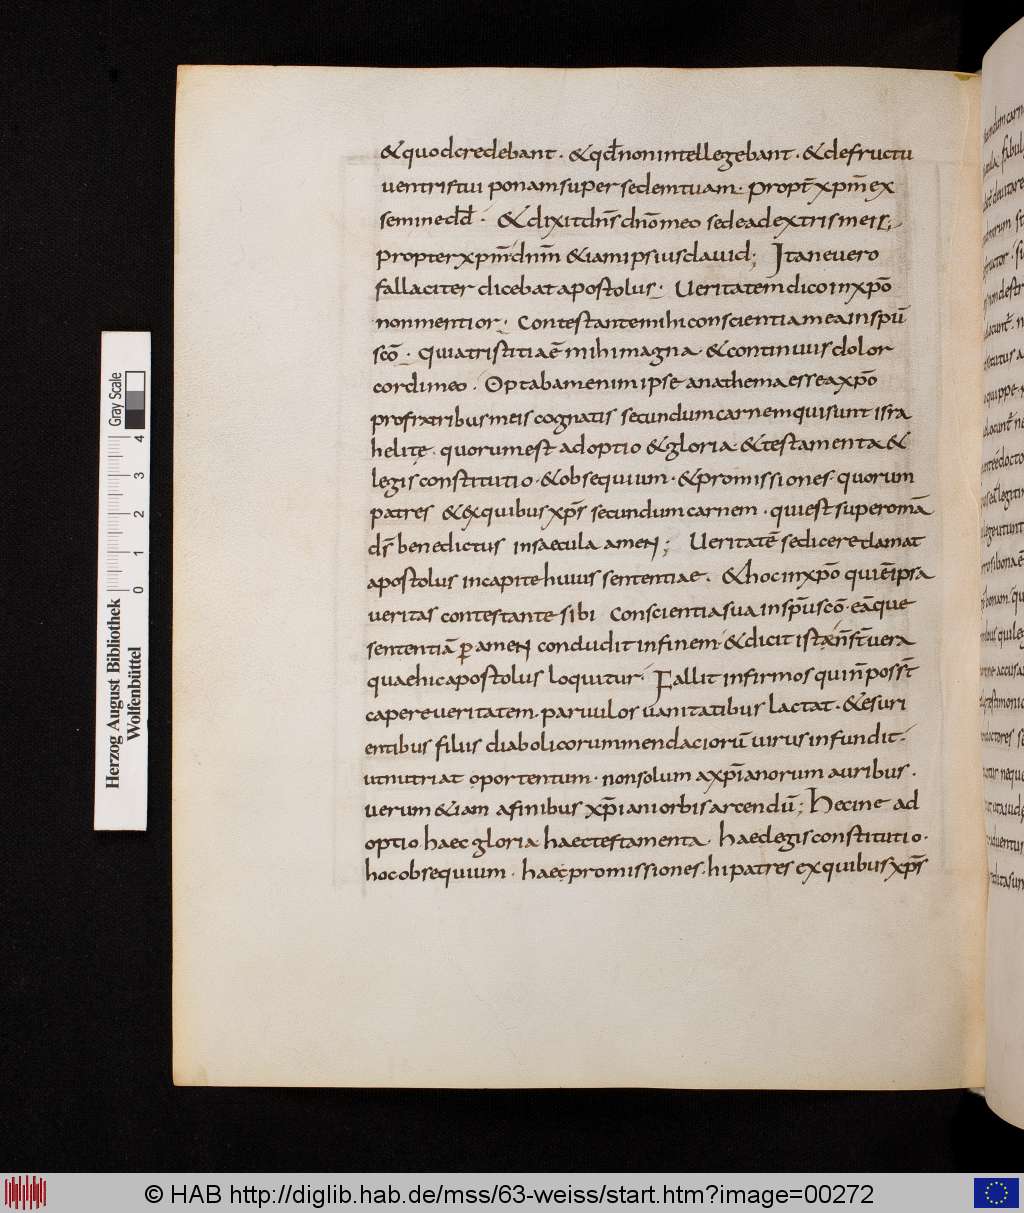 & quod credebant · & qđ non intellegebant · & de fructu
uentris tui ponam super sedem tuam · propt̄ xp̄m ex
semine dd̄ · & dixit dn̄s dn̄o meo sede ad extris meis;
propter xp̄m dn̄m & iam ipsius dauid; Itane uero
fallaciter dicebat apostolus · Ueritatem dico in xp̄o
non mentior · Contestante mihi conscientia mea in sp̄u
scō · quia tristitia ē mihi magna & continuus dolor
cordi meo · Optabam enim ipse anathema esse a xp̄o
pro fratribus meis cognatis secundum carnem qui sunt isra
helitę · quorum est adoptio & gloria & testamenta &
legis constitutio · & obsequium · & promissiones · quorum
patres & ex quibus xp̄s secundum carnem · qui est super omā
ds̄ benedictus in saecula amen; Ueritatē se dicere clamat
apostolus in capite huius sententiae · & hoc in xp̄o qui ē ipsa
ueritas contestante sibi conscientia sua in sp̄u scō · eāque
sententiā p̱ amen concludit in finem · & dicit ista n̄ st̄ uera
quae hic apostolus loquitur · Fallit infirmos qui n̄ poss̄t
capere ueritatem · paruulos uanitatibus lactat · & esuri
entibus filiis diabolicorum mendaciorū uirus infundit ·
ut nutriat oportentum · non solum a xp̄ianorum auribus ·
uerum & iam a finibus xp̄iani orbis arcendū; Hecine ad
optio haec gloria haec testamenta · haec legis constitutio ·
hoc obsequium · haec promissiones · hi patres ex quibus xp̄s
Gray Scale
0 1 2 3 4
Herzog August Bibliothek
Wolfenbüttel
© HAB http://diglib.hab.de/mss/63-weiss/start.htm?image=00272